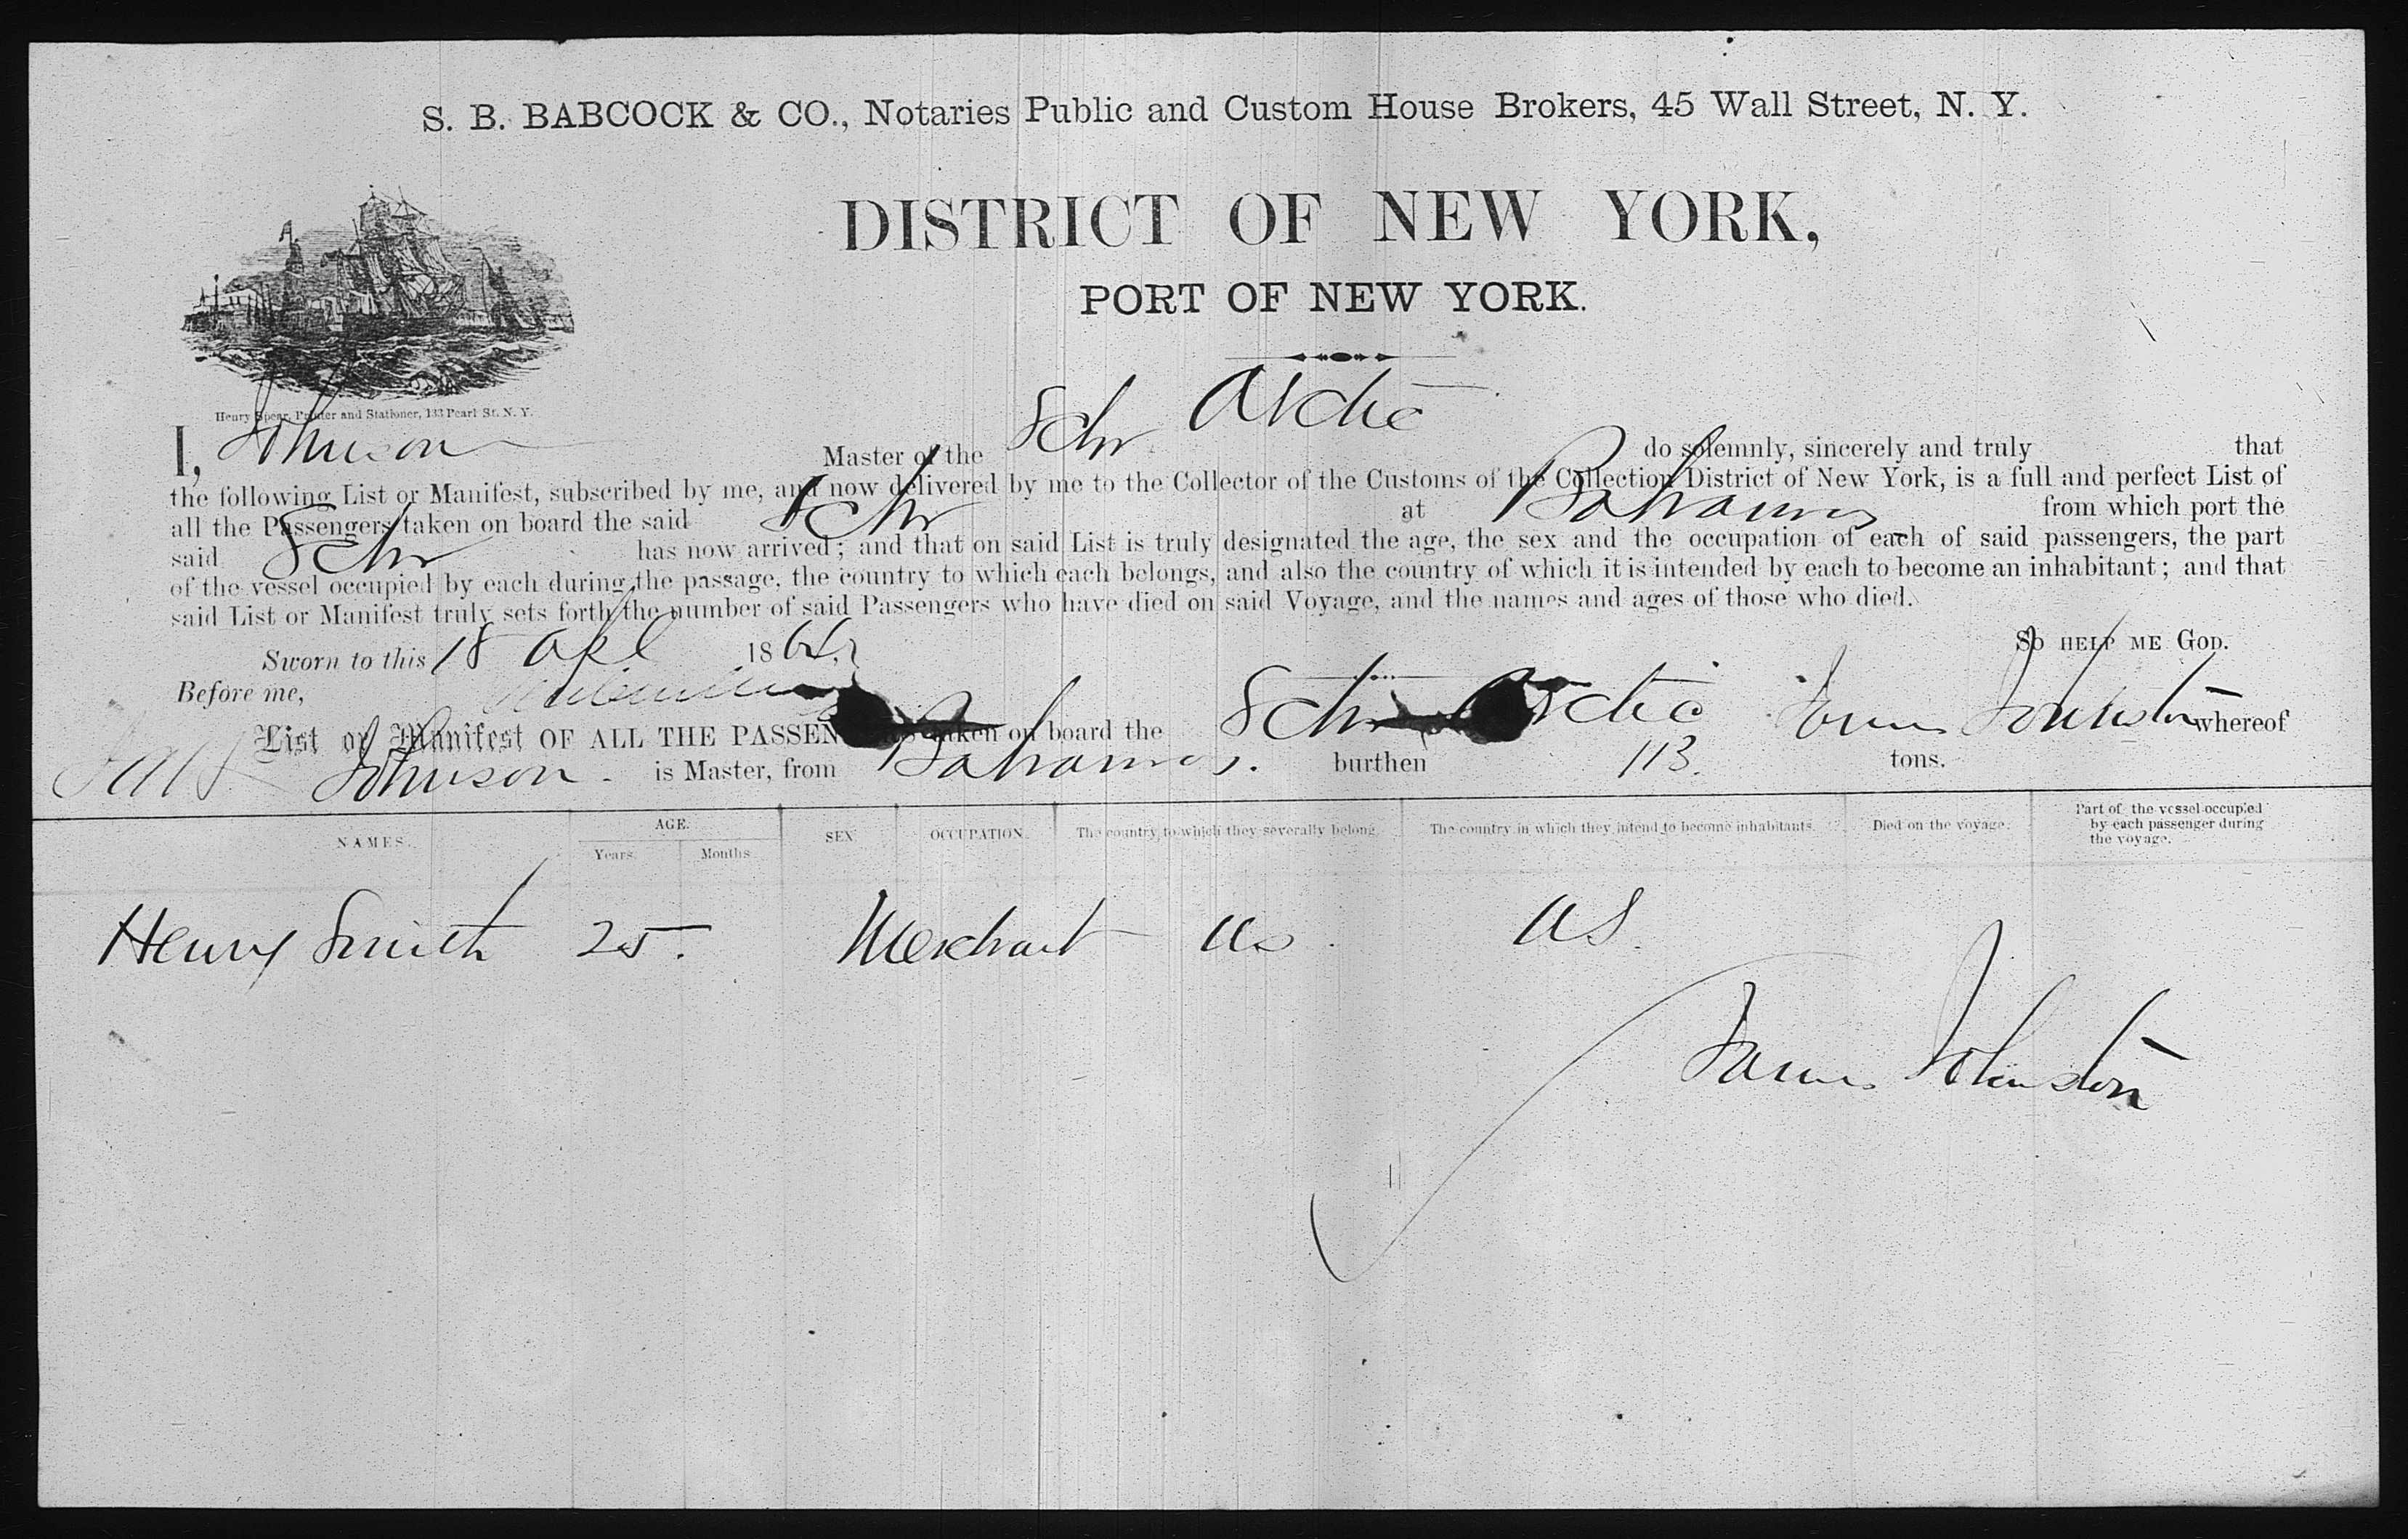 S. B. BABCOCK & CO., Notaries Public and Custom House Brokers, 45 Wall Street, N. Y.
DISTRICT OF NEW YORK,
PORT OF NEW YORK.
Henry Spear, Printer and Stationer, 133 Pearl St. N. Y.
I, Johnson Master of the Schr Arctic do solemnly, sincerely and truly that
the following List or Manifest, subscribed by me, and now delivered by me to the Collector of the Customs of the Collection District of New York, is a full and perfect List of
all the Passengers taken on board the said Schr at Bahamas from which port the
said Schr has now arrived; and that on said List is truly designated the age, the sex and the occupation of each of said passengers, the part
of the vessel occupied by each during the passage, the country to which each belongs, and also the country of which it is intended by each to become an inhabitant; and that
said List or Manifest truly sets forth the number of said Passengers who have died on said Voyage, and the names and ages of those who died.
SO HELP ME GOD.
Sworn to this 18 Apl 186
Before me,
James Johnston
List or Manifest OF ALL THE PASSEN taken on board the Schr Arctic whereof
Johnson is Master, from Bahamas. burthen 113. tons.
NAMES. AGE. Years. Months. SEX. OCCUPATION. The country to which they severally belong. The country in which they intend to become inhabitants. Died on the voyage. Part of the vessel occupied by each passenger during the voyage.
Henry Smith 25. Merchant US. US.
James Johnston